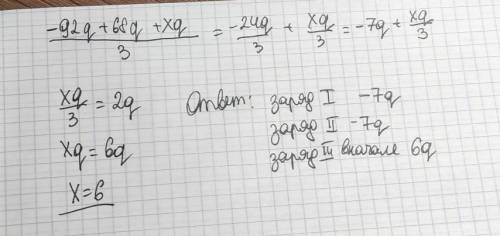 (-92q + 68q + xq)/3 = -24q/3 + xq/3 = -7q + xq/3
xq/3 = 2q
xq = 6q
x = 6
Ответ: заряд I -7q
заряд II -7q
заряд III вначале 6q